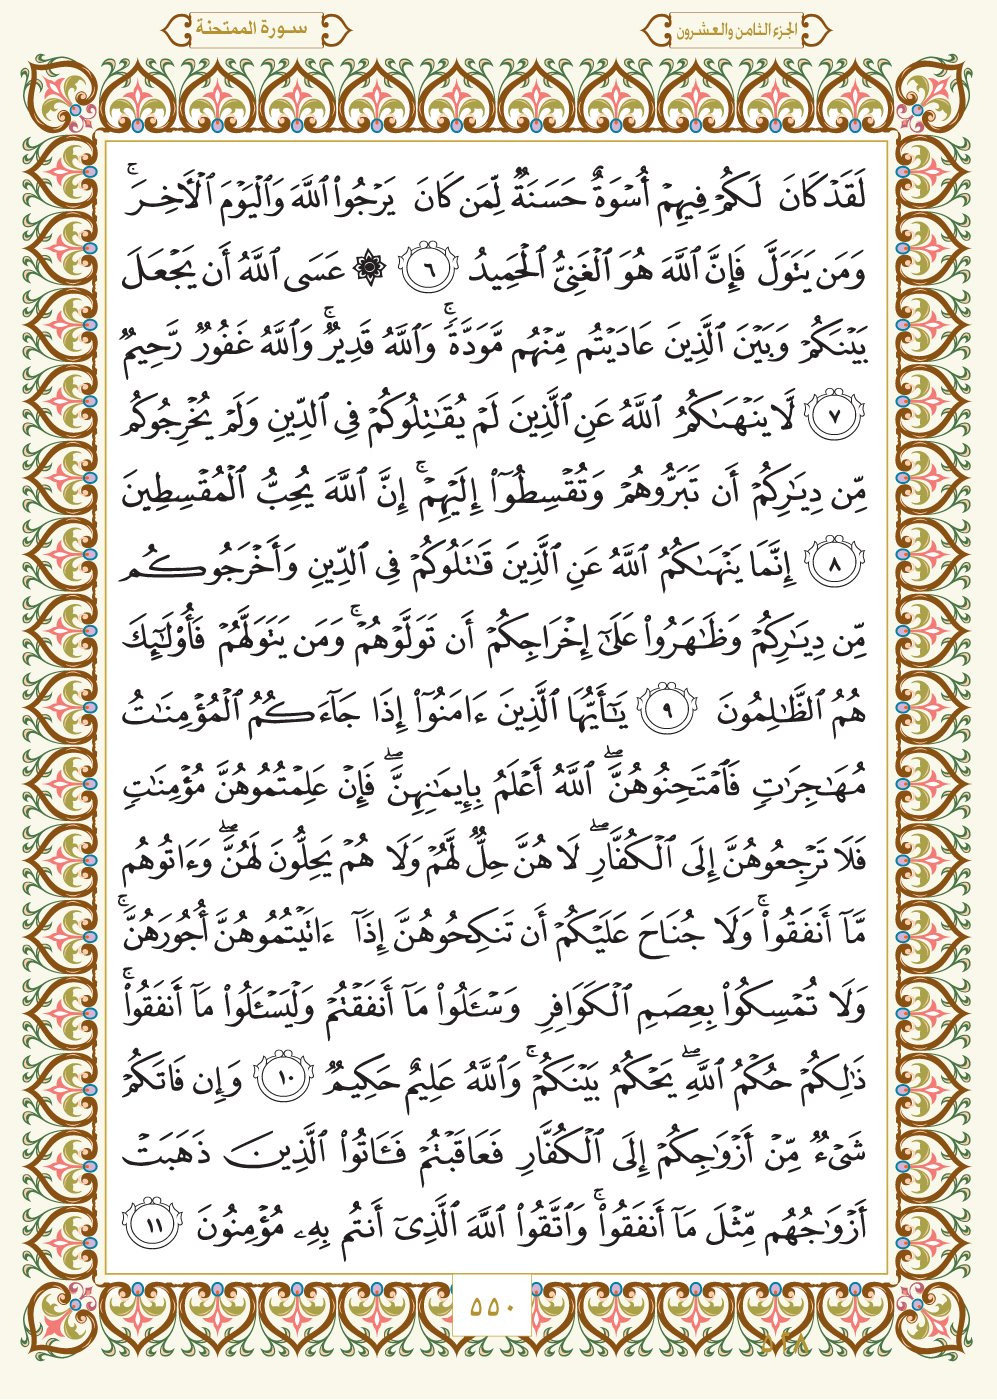 الجزء الثامن والعشرون
سورة الممتحنة
لَقَدْ كَانَ لَكُمْ فِيهِمْ أُسْوَةٌ حَسَنَةٌ لِّمَن كَانَ يَرْجُوا۟ ٱللَّهَ وَٱلْيَوْمَ ٱلْـَٔاخِرَ ۚ
وَمَن يَتَوَلَّ فَإِنَّ ٱللَّهَ هُوَ ٱلْغَنِىُّ ٱلْحَمِيدُ ٦ ۞ عَسَى ٱللَّهُ أَن يَجْعَلَ
بَيْنَكُمْ وَبَيْنَ ٱلَّذِينَ عَادَيْتُم مِّنْهُم مَّوَدَّةً ۚ وَٱللَّهُ قَدِيرٌ ۚ وَٱللَّهُ غَفُورٌ رَّحِيمٌ
٧ لَّا يَنْهَىٰكُمُ ٱللَّهُ عَنِ ٱلَّذِينَ لَمْ يُقَـٰتِلُوكُمْ فِى ٱلدِّينِ وَلَمْ يُخْرِجُوكُم
مِّن دِيَـٰرِكُمْ أَن تَبَرُّوهُمْ وَتُقْسِطُوٓا۟ إِلَيْهِمْ ۚ إِنَّ ٱللَّهَ يُحِبُّ ٱلْمُقْسِطِينَ
٨ إِنَّمَا يَنْهَىٰكُمُ ٱللَّهُ عَنِ ٱلَّذِينَ قَـٰتَلُوكُمْ فِى ٱلدِّينِ وَأَخْرَجُوكُم
مِّن دِيَـٰرِكُمْ وَظَـٰهَرُوا۟ عَلَىٰٓ إِخْرَاجِكُمْ أَن تَوَلَّوْهُمْ ۚ وَمَن يَتَوَلَّهُمْ فَأُو۟لَـٰٓئِكَ
هُمُ ٱلظَّـٰلِمُونَ ٩ يَـٰٓأَيُّهَا ٱلَّذِينَ ءَامَنُوٓا۟ إِذَا جَآءَكُمُ ٱلْمُؤْمِنَـٰتُ
مُهَـٰجِرَٰتٍ فَٱمْتَحِنُوهُنَّ ۖ ٱللَّهُ أَعْلَمُ بِإِيمَـٰنِهِنَّ ۖ فَإِنْ عَلِمْتُمُوهُنَّ مُؤْمِنَـٰتٍ
فَلَا تَرْجِعُوهُنَّ إِلَى ٱلْكُفَّارِ ۖ لَا هُنَّ حِلٌّ لَّهُمْ وَلَا هُمْ يَحِلُّونَ لَهُنَّ ۖ وَءَاتُوهُم
مَّآ أَنفَقُوا۟ ۚ وَلَا جُنَاحَ عَلَيْكُمْ أَن تَنكِحُوهُنَّ إِذَآ ءَاتَيْتُمُوهُنَّ أُجُورَهُنَّ ۚ
وَلَا تُمْسِكُوا۟ بِعِصَمِ ٱلْكَوَافِرِ وَسْـَٔلُوا۟ مَآ أَنفَقْتُمْ وَلْيَسْـَٔلُوا۟ مَآ أَنفَقُوا۟ ۚ
ذَٰلِكُمْ حُكْمُ ٱللَّهِ ۖ يَحْكُمُ بَيْنَكُمْ ۚ وَٱللَّهُ عَلِيمٌ حَكِيمٌ ١٠ وَإِن فَاتَكُمْ
شَىْءٌ مِّنْ أَزْوَٰجِكُمْ إِلَى ٱلْكُفَّارِ فَعَاقَبْتُمْ فَـَٔاتُوا۟ ٱلَّذِينَ ذَهَبَتْ
أَزْوَٰجُهُم مِّثْلَ مَآ أَنفَقُوا۟ ۚ وَٱتَّقُوا۟ ٱللَّهَ ٱلَّذِىٓ أَنتُم بِهِۦ مُؤْمِنُونَ ١١
٥٥٠